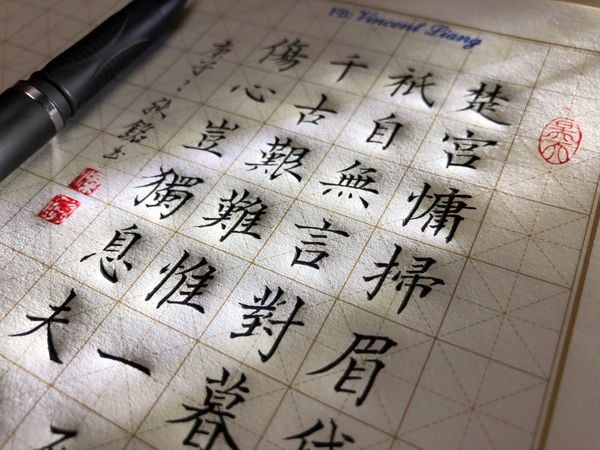 FB: Vincent Liang
楚宮慵掃眉
祇自無言對暮
千古艱難惟一
傷心豈獨息夫